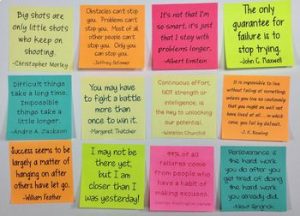 Big shots are
only little shots
who keep on
shooting.
-Christopher Morley
Obstacles can't stop
you. Problems can't
stop you. Most of
all other people
can't stop you. Only
you can stop
you. -Jeffrey Gitomer
It's not that I'm
so smart, it's just
that I stay with
problems longer.
-Albert Einstein
The only
guarantee for
failure is to
stop trying.
-John C. Maxwell
Difficult things
take a long time.
Impossible
things take a
little longer.
-Andre A. Jackson
You may have
to fight a battle
more than
once to win it.
-Margaret Thatcher
Continuous effort,
NOT strength or
intelligence, is
the key to unlocking
our potential.
-Winston Churchill
It is impossible to live
without failing at something,
unless you live so cautiously
that you might as well not
have lived at all... in which
case, you fail by default.
-J. K. Rowling
Success seems to be
largely a matter of
hanging on after
others have let go.
-William Feather
I may not be
there yet,
but I am
closer than I
was yesterday!
99% of all
failures come
from people who
have a habit of
making excuses.
Perseverance is
the hard work
you do after you
get tired of doing
the hard work
you already did.
-Newt Gingrich